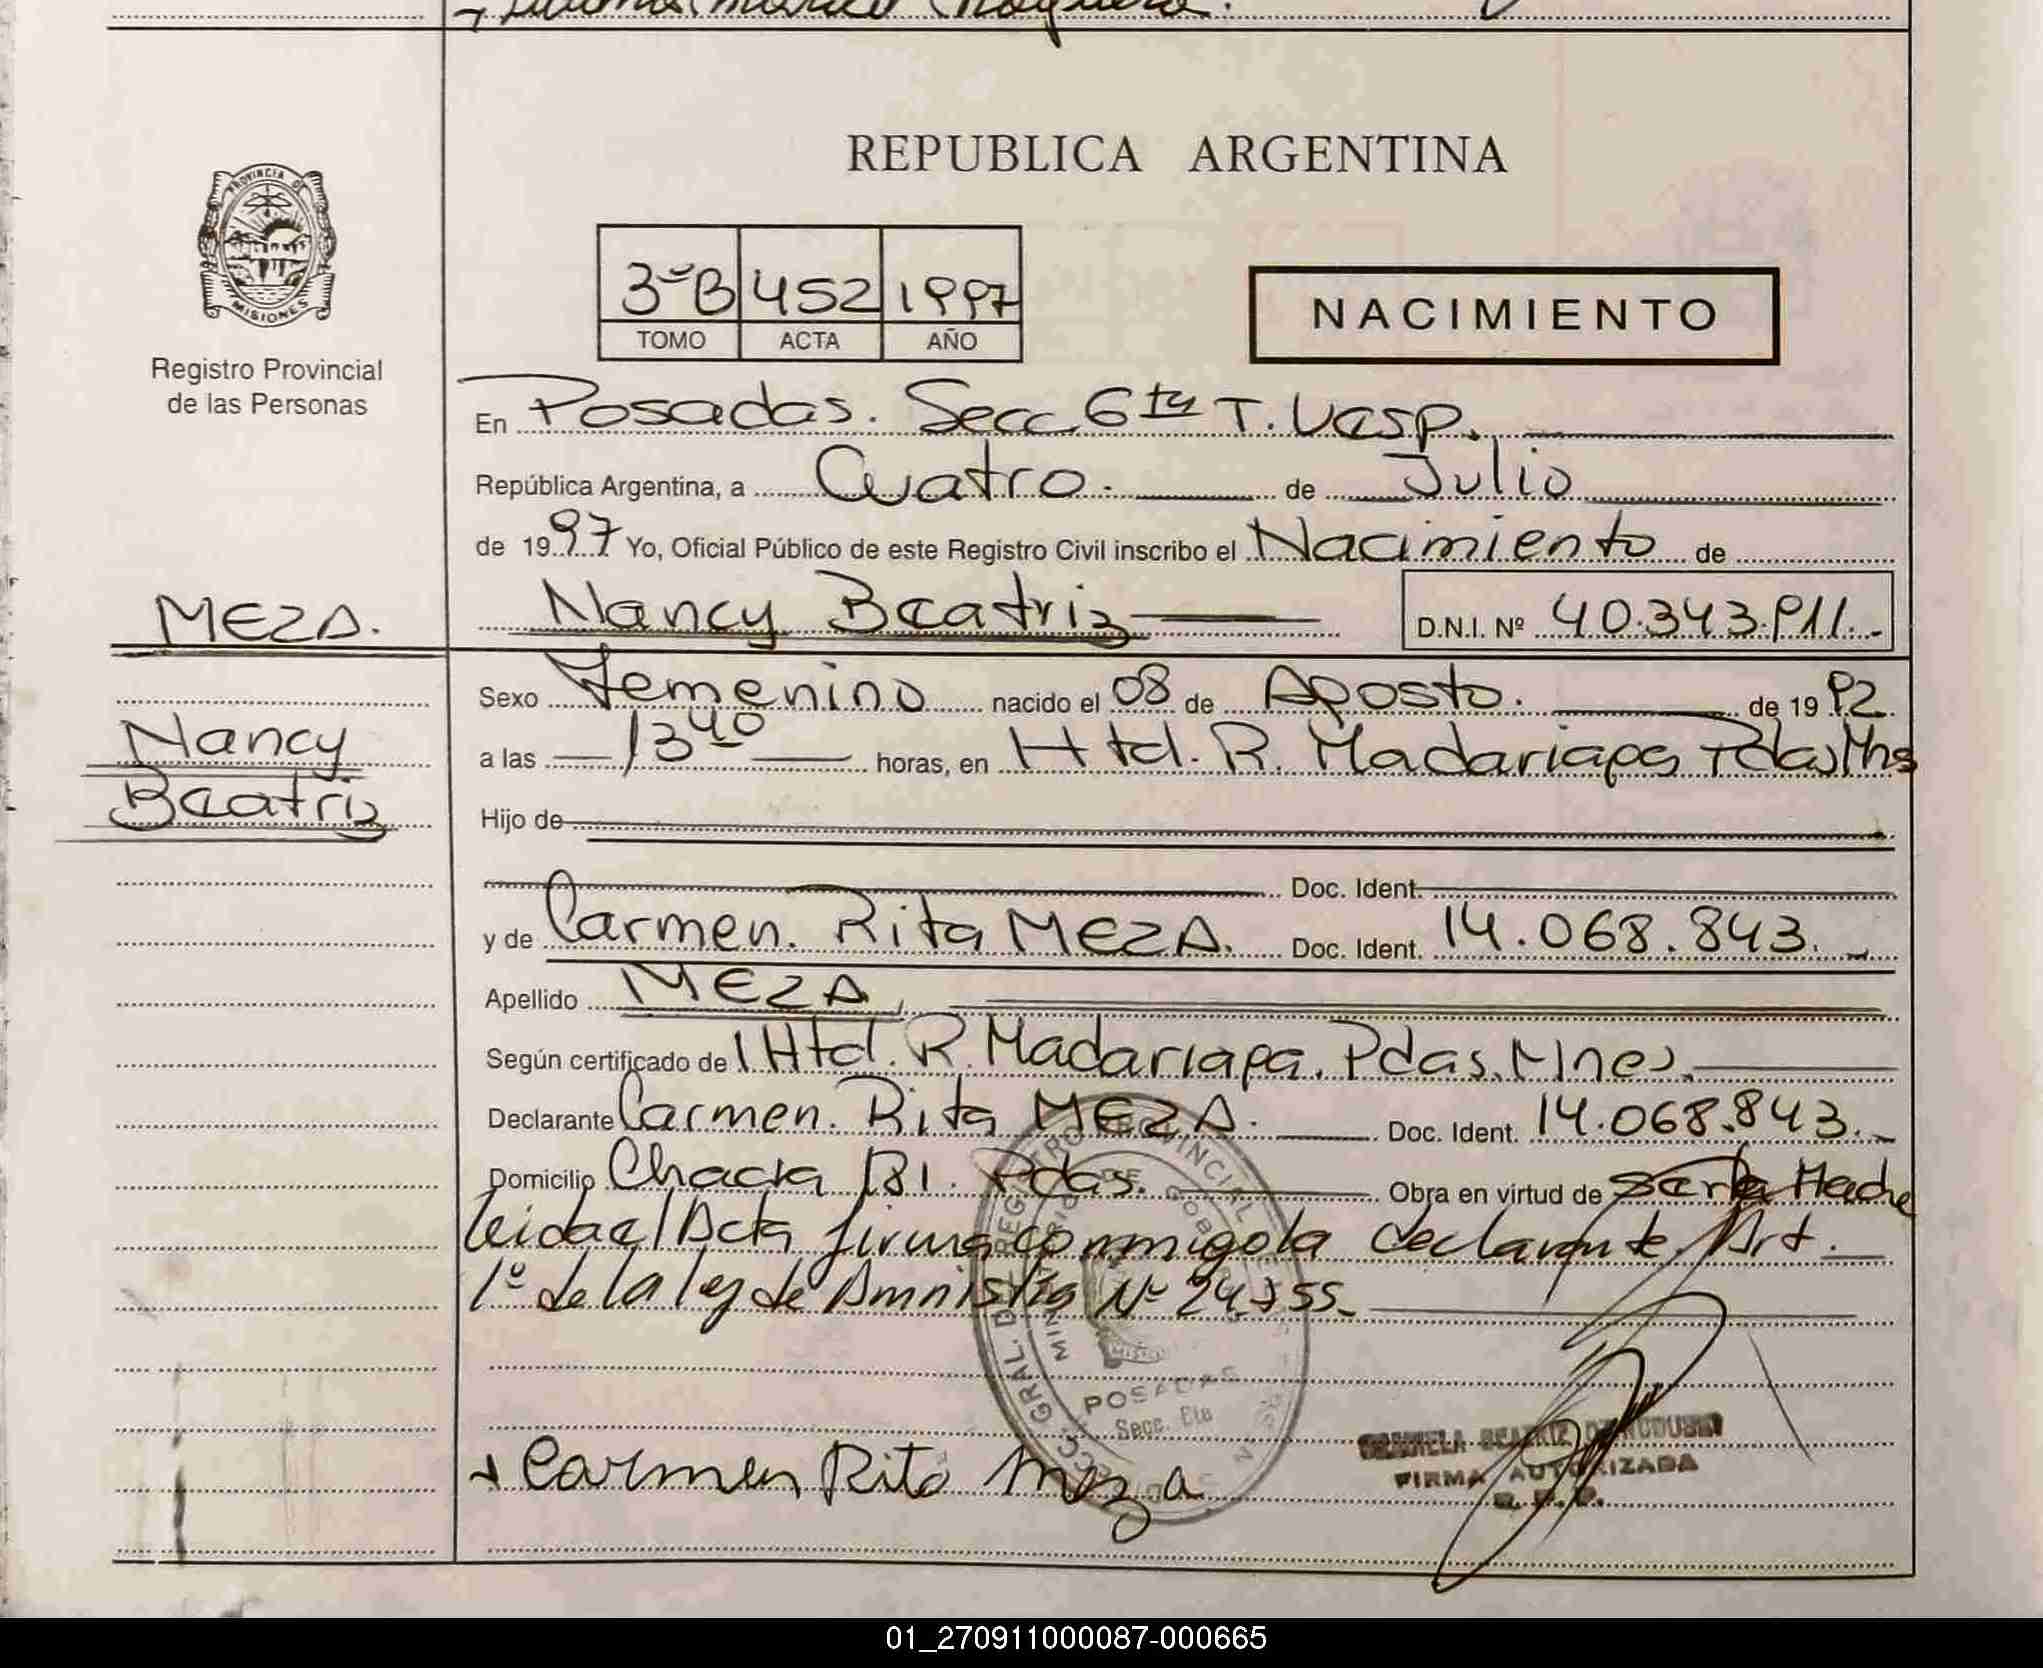 REPUBLICA ARGENTINA
PROVINCIA DE
MISIONES
Registro Provincial
de las Personas
3ºB 452 1997
TOMO ACTA AÑO
NACIMIENTO
En Posadas. Secc. 6ta T. Vesp.
República Argentina, a Cuatro. de Julio
de 1997 Yo, Oficial Público de este Registro Civil inscribo el Nacimiento de
MEZA.
Nancy Beatriz D.N.I. Nº 40.343.911.
Sexo Femenino nacido el 08 de Agosto. de 1992
Nancy
Beatriz
a las 13 40 horas, en Htal. R. Madariaga Pdas Mnes
Hijo de
Doc. Ident.
y de Carmen. Rita MEZA. Doc. Ident. 14.068.843.
Apellido MEZA
Según certificado de l Htal. R. Madariaga. Pdas. Mnes.
Declarante Carmen. Rita MEZA. Doc. Ident. 14.068.843.
Domicilio Chacra 181. Pdas. Obra en virtud de ser la Madre
leida el Acta firma conmigo la declarante. Art.
1º de la ley de Amnistia Nº 24.755.
POSADAS
Secc. 6ta
Carmen Rita Meza
BEATRIZ
FIRMA AUTORIZADA
01_270911000087-000665